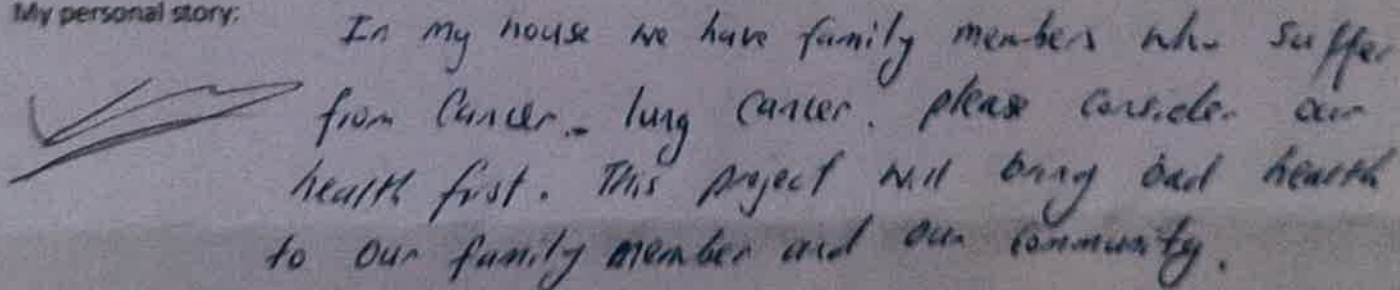 My personal story:
In my house we have family members who suffer
from Cancer - lung cancer. please consider our
health first. This project will bring bad health
to our family member and our community.